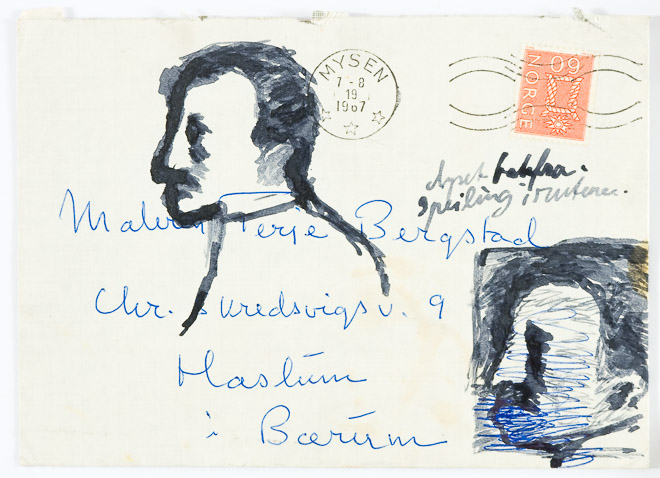 MYSEN
7-8
19
1967
NORGE
60
lyset bakfra.
speiling i ruten.
Maleren Terje Bergstad
Chr. Skredsvigs v. 9
Haslum
i Bærum